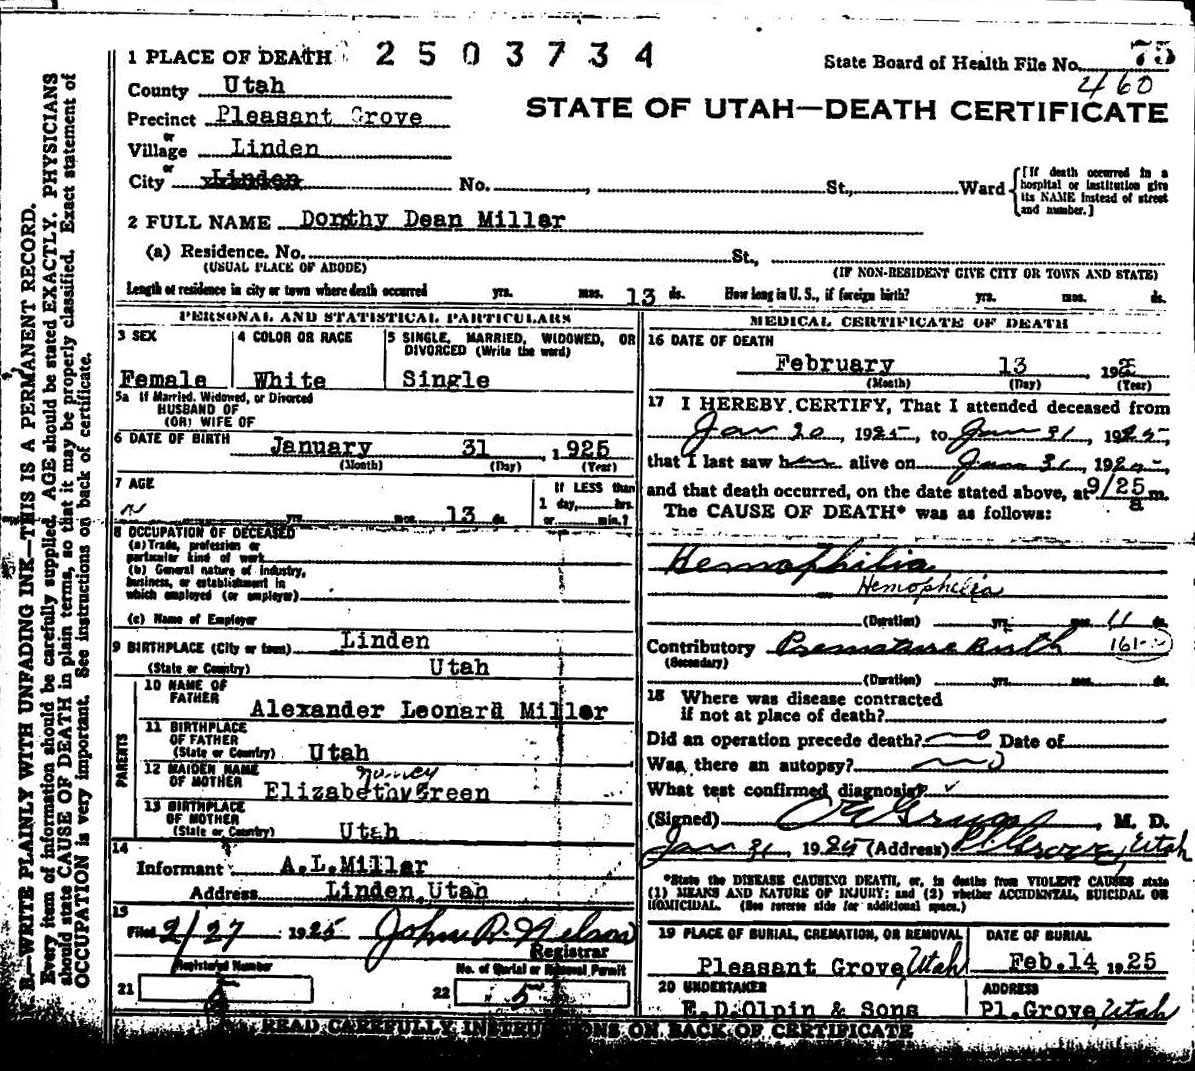 1 PLACE OF DEATH 2503734
State Board of Health File No. 75
460
County Utah
STATE OF UTAH—DEATH CERTIFICATE
Precinct Pleasant Grove
or
Village Linden
or
City Linden No. , St., Ward
[If death occurred in a
hospital or institution give
its NAME instead of street
and number.]
2 FULL NAME Dorothy Dean Miller
(a) Residence. No. St.,
(USUAL PLACE OF ABODE) (IF NON-RESIDENT GIVE CITY OR TOWN AND STATE)
Length of residence in city or town where death occurred yrs. mos. 13 ds. How long in U. S., if foreign birth? yrs. mos. ds.
PERSONAL AND STATISTICAL PARTICULARS
3 SEX
Female
4 COLOR OR RACE
White
5 SINGLE, MARRIED, WIDOWED, OR
DIVORCED (Write the word)
Single
5a If Married, Widowed, or Divorced
HUSBAND OF
(OR) WIFE OF
6 DATE OF BIRTH January 31, 1925
(Month) (Day) (Year)
7 AGE
yrs. mos. 13 ds.
If LESS than
1 day, hrs.
or min.?
8 OCCUPATION OF DECEASED
(a) Trade, profession or
particular kind of work
(b) General nature of industry,
business, or establishment in
which employed (or employer)
(c) Name of Employer
9 BIRTHPLACE (City or town) Linden
(State or Country) Utah
PARENTS
10 NAME OF
FATHER Alexander Leonard Miller
11 BIRTHPLACE
OF FATHER
(State or Country) Utah
12 MAIDEN NAME
OF MOTHER Elizabeth Green
13 BIRTHPLACE
OF MOTHER
(State or Country) Utah
14
Informant A.L.Miller
Address Linden, Utah
15
Filed 2/27 1925 John R. Nelson
Registrar
Registered Number
21 5
No. of Burial or Removal Permit
22 5
MEDICAL CERTIFICATE OF DEATH
16 DATE OF DEATH
February 13, 192
(Month) (Day) (Year)
17 I HEREBY CERTIFY, That I attended deceased from
Jan 20, 1925, to Jan 31, 1925,
that I last saw h alive on Jan 31, 1925,
and that death occurred, on the date stated above, at 9/25 a m.
The CAUSE OF DEATH* was as follows:
Hemophilia
Hemophilia
(Duration) yrs. mos. 11 ds.
Contributory Premature Birth 161
(Secondary)
(Duration) yrs. mos. ds.
18 Where was disease contracted
if not at place of death?
Did an operation precede death? no Date of
Was there an autopsy? no
What test confirmed diagnosis?
(Signed) , M. D.
Jan 31, 1925 (Address) Pl Grove, Utah
*State the DISEASE CAUSING DEATH, or, in deaths from VIOLENT CAUSES state
(1) MEANS AND NATURE OF INJURY; and (2) whether ACCIDENTAL, SUICIDAL OR
HOMICIDAL. (See reverse side for additional space.)
19 PLACE OF BURIAL, CREMATION, OR REMOVAL
Pleasant Grove, Utah
DATE OF BURIAL
Feb. 14 1925
20 UNDERTAKER
E.D.Olpin & Sons
ADDRESS
Pl.Grove, Utah
READ CAREFULLY INSTRUCTIONS ON BACK OF CERTIFICATE
N. B.—WRITE PLAINLY WITH UNFADING INK—THIS IS A PERMANENT RECORD.
Every item of information should be carefully supplied. AGE should be stated EXACTLY. PHYSICIANS
should state CAUSE OF DEATH in plain terms, so that it may be properly classified. Exact statement of
OCCUPATION is very important. See instructions on back of certificate.